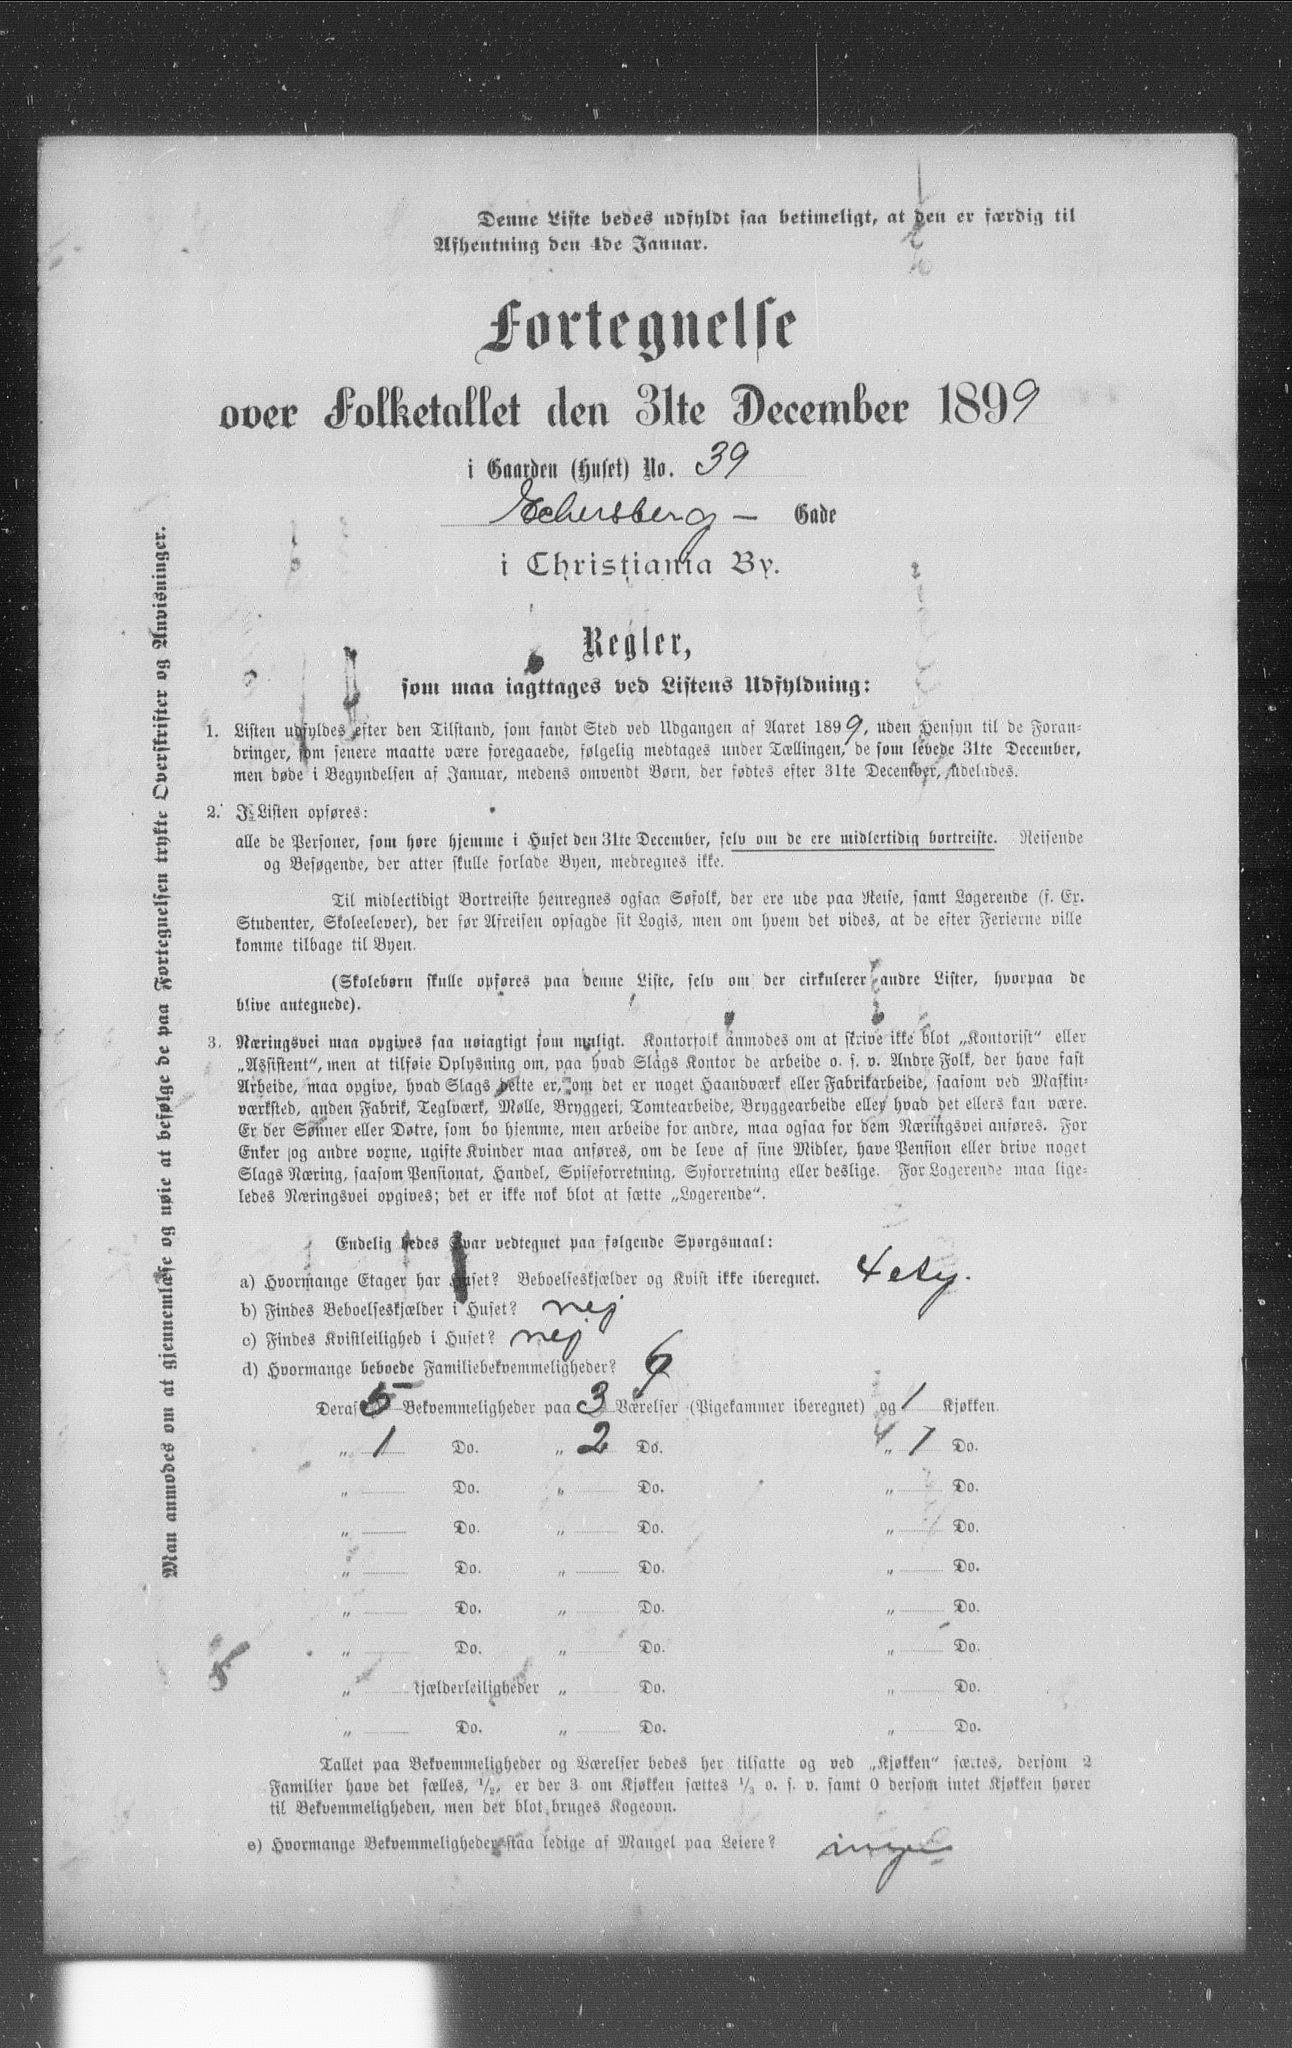 Denne Liste bedes udfyldt saa betimeligt, at den er færdig til
Afhentning den 4de Januar.
Fortegnelse
over Folketallet den 31te December 1899
i Gaarden (Huset) No. 39
Eckersberg – Gade
i Christiania By.
Regler,
som maa iagttages ved Listens Udfyldning:
1. Listen udfyldes efter den Tilstand, som fandt Sted ved Udgangen af Aaret 1899, uden Hensyn til de Foran-
dringer, som senere maatte være foregaaede, følgelig medtages under Tællingen, de som levede 31te December,
men døde i Begyndelsen af Januar, medens omvendt Børn, der fødtes efter 31te December, udelades.
2. I Listen opføres:
alle de Personer, som høre hjemme i Huset den 31te December, selv om de ere midlertidig bortreiste. Reisende
og Besøgende, der atter skulle forlade Byen, medregnes ikke.
Til midlectidigt Bortreiste henregnes ogsaa Søfolk, der ere ude paa Reise, samt Logerende (f. Ex.
Studenter, Skoleelever), der før Afreisen opsagde sit Logis, men om hvem det vides, at de efter Ferierne ville
komme tilbage til Byen.
(Skolebørn skulle opføres paa denne Liste, selv om der cirkulerer andre Lister, hvorpaa de
blive antegnede).
3. Næringsvei maa opgives saa nøiagtigt som muligt. Kontorfolk anmodes om at skrive ikke blot „Kontorist“ eller
„Assistent“, men at tilføie Oplysning om, paa hvad Slags Kontor de arbeide o. s. v. Andre Folk, der have fast
Arbeide, maa opgive, hvad Slags dette er, om det er noget Haandværk eller Fabrikarbeide, saasom ved Maskin-
værksted, anden Fabrik, Teglværk, Mølle, Bryggeri, Tomtearbeide, Bryggearbeide eller hvad det ellers kan være.
Er der Sønner eller Døtre, som bo hjemme, men arbeide for andre, maa ogsaa for dem Næringsvei anføres. For
Enker og andre voxne, ugifte Kvinder maa anføres, om de leve af sine Midler, have Pension eller drive noget
Slags Næring, saasom Pensionat, Handel, Spiseforretning, Syforretning eller deslige. For Logerende maa lige-
ledes Næringsvei opgives; det er ikke nok blot at sætte „Logerende“.
Endelig bedes Svar vedtegnet paa følgende Spørgsmaal:
a) Hvormange Etager har Huset? Beboelseskjælder og Kvist ikke iberegnet. 4 etg.
b) Findes Beboelseskjælder i Huset? nej
c) Findes Kvistleilighed i Huset? nej
d) Hvormange beboede Familiebekvemmeligheder? 6
Deraf 5 Bekvemmeligheder paa 3 Værelser (Pigekammer iberegnet) og 1 Kjøkken.
„ 1 Do. „ 2 Do. „ 1 Do.
„ Do. „ Do. „ Do.
„ Do. „ Do. „ Do.
„ Do. „ Do. „ Do.
„ Do. „ Do. „ Do.
„ Do. „ Do. „ Do.
„ Kjælderleiligheder „ Do. „ Do.
„ Do. „ Do. „ Do.
Tallet paa Bekvemmeligheder og Værelser bedes her tilsatte og ved „Kjøkken“ sættes, dersom 2
Familier have det fælles, 1/2, er der 3 om Kjøkken sættes 1/3 o. s. v. samt 0 dersom intet Kjøkken hører
til Bekvemmeligheden, men der blot bruges Kogeovn.
e) Hvormange Bekvemmeligheder staa ledige af Mangel paa Leiere?
Man anmodes om at gjennemlæse og nøie at befølge de paa Fortegnelsen trykte Overskrifter og Anvisninger.